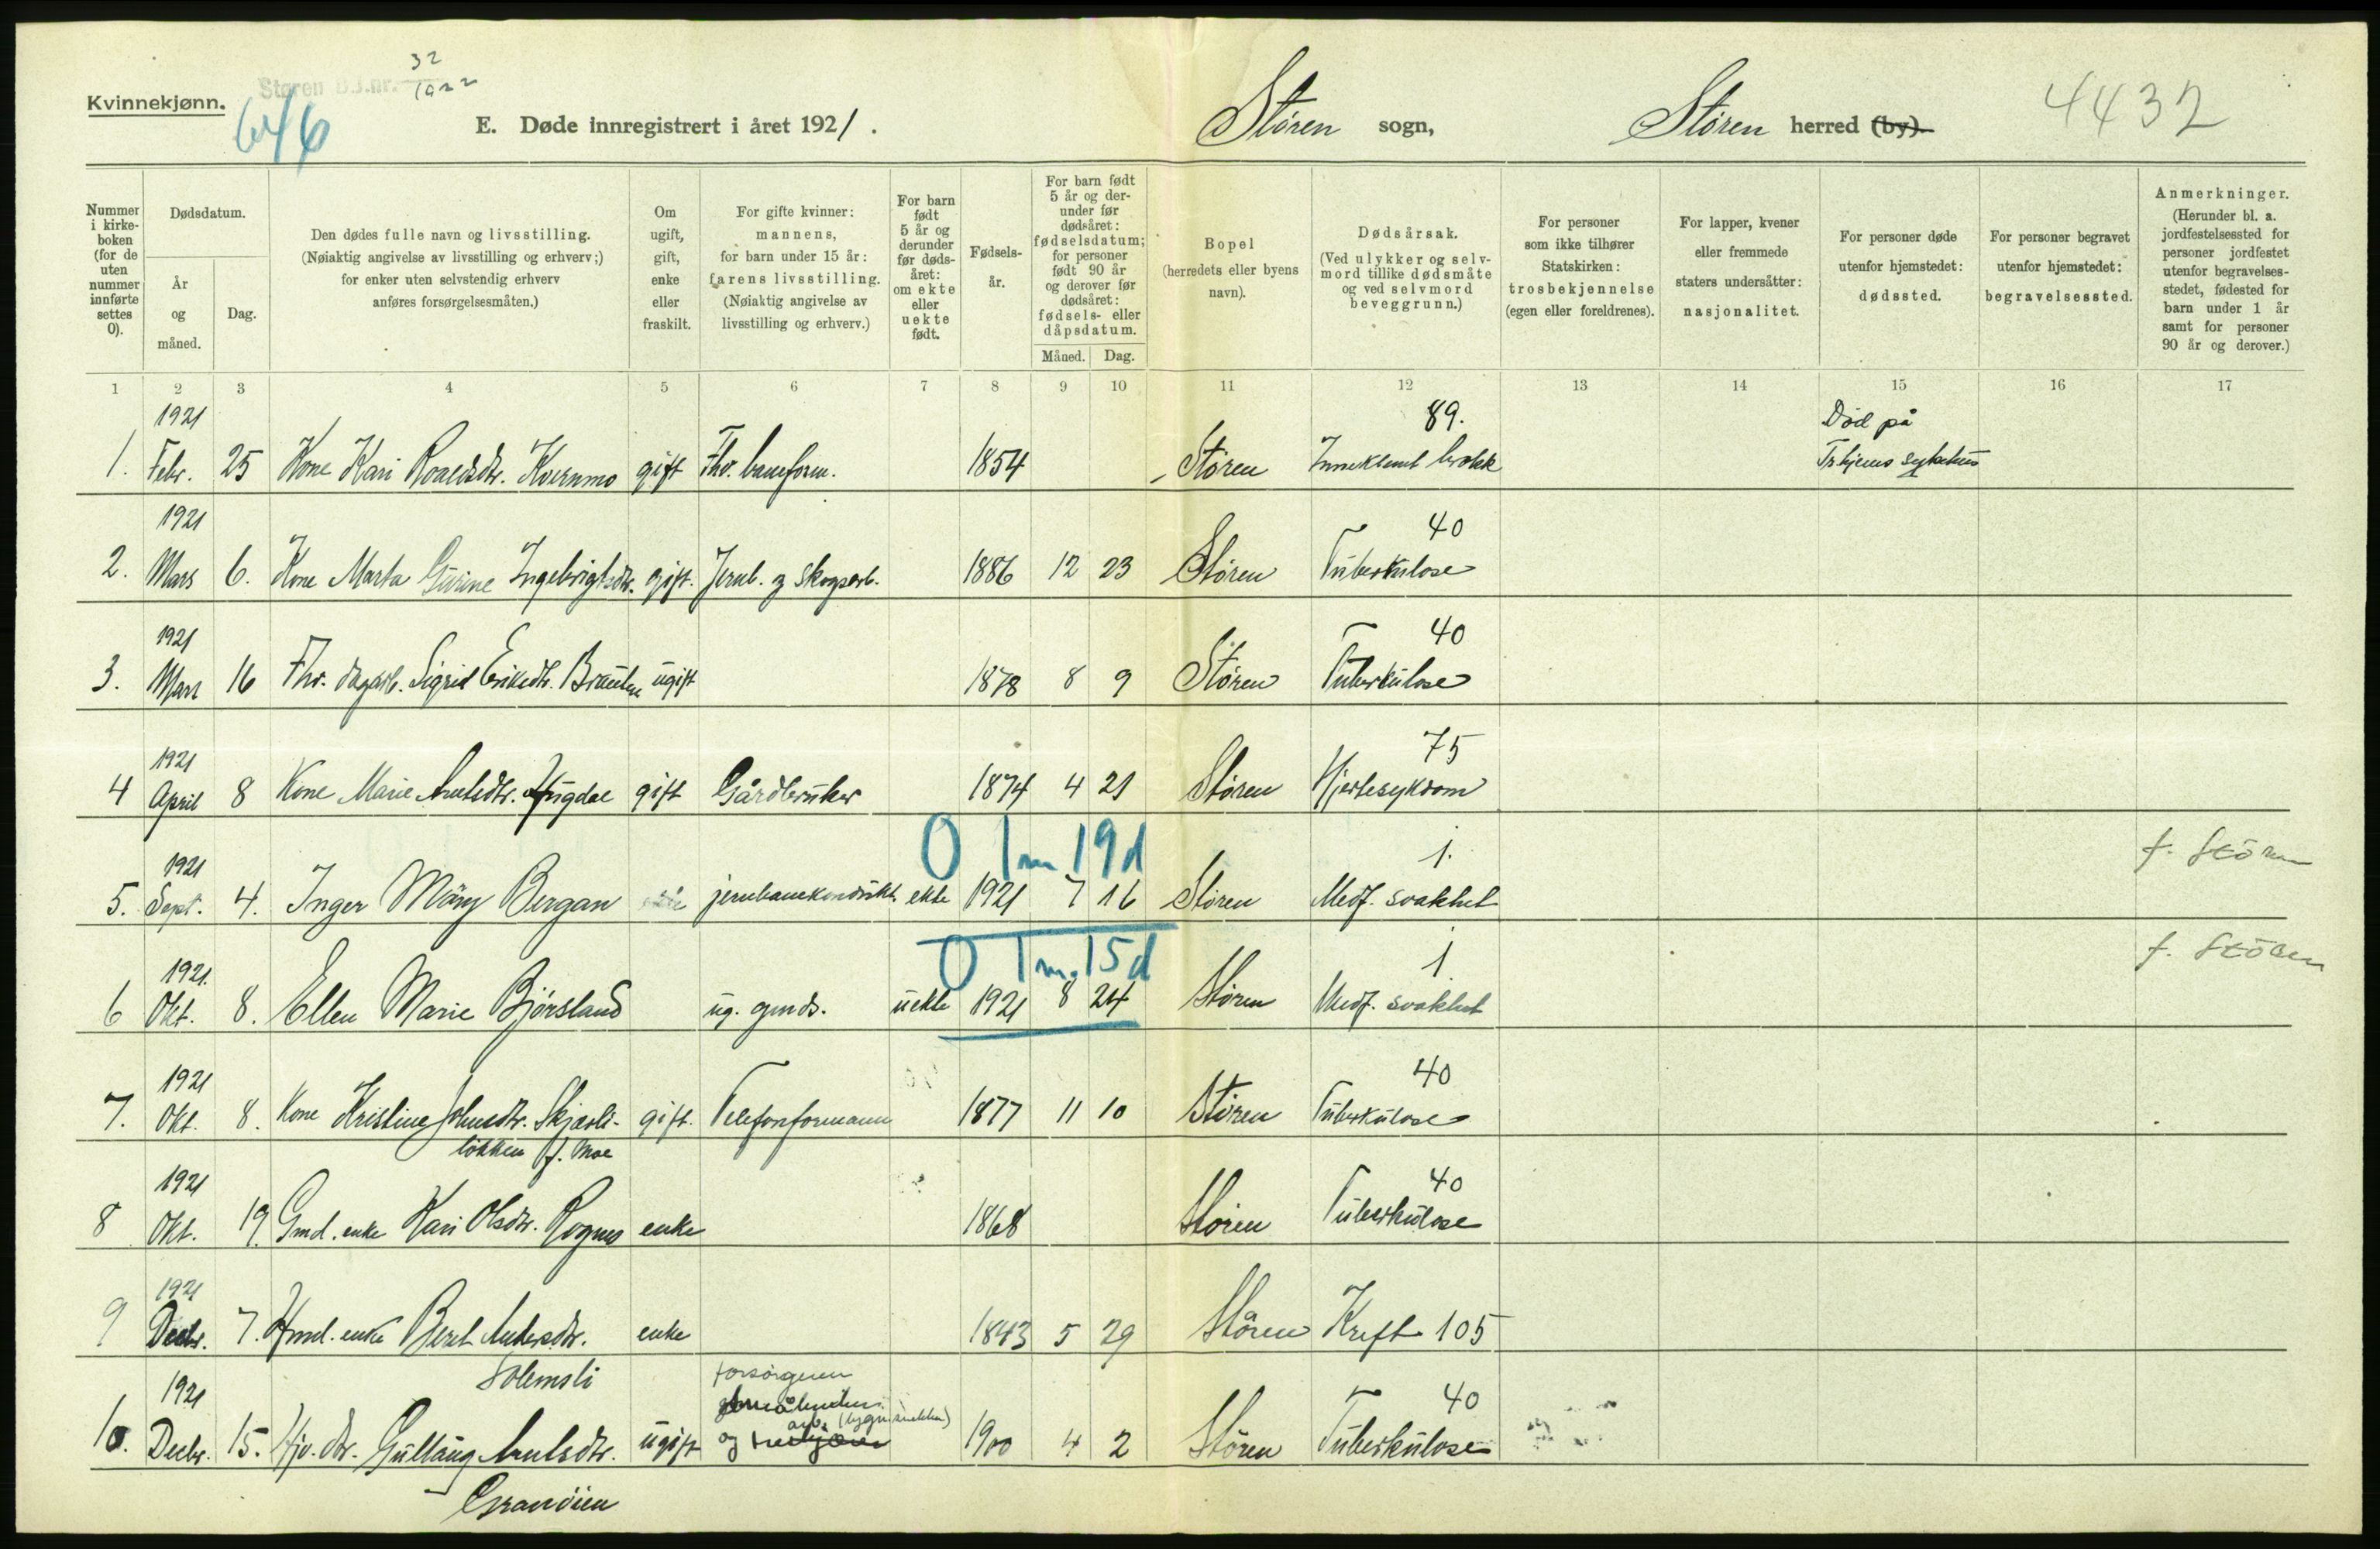 Kvinnekjønn.
Støren D.J.nr. 32
1922
646
E. Døde innregistrert i året 1921.
Støren sogn,
Støren herred (by).
4432
Nummer i kirkeboken (for de uten nummer innførte settes 0).
Dødsdatum.
År og måned.
Dag.
Den dødes fulle navn og livsstilling.
(Nøiaktig angivelse av livsstilling og erhverv;)
for enker uten selvstendig erhverv
anføres forsørgelsesmåten.)
Om ugift, gift, enke eller fraskilt.
For gifte kvinner:
mannens,
for barn under 15 år:
farens livsstilling.
(Nøiaktig angivelse av
livsstilling og erhverv.)
For barn født 5 år og derunder før dødsåret: om ekte eller uekte født.
Fødselsår.
For barn født 5 år og derunder før dødsåret: fødselsdatum; for personer født 90 år og derover før dødsåret: fødsels- eller dåpsdatum.
Måned. Dag.
Bopel
(herredets eller byens
navn).
Dødsårsak.
(Ved ulykker og selvmord tillike dødsmåte og ved selvmord beveggrunn.)
For personer
som ikke tilhører
Statskirken:
trosbekjennelse
(egen eller foreldrenes).
For lapper, kvener
eller fremmede
staters undersåtter:
nasjonalitet.
For personer døde
utenfor hjemstedet:
dødssted.
For personer begravet
utenfor hjemstedet:
begravelsessted.
Anmerkninger.
(Herunder bl. a. jordfestelsessted for personer jordfestet utenfor begravelsesstedet, fødested for barn under 1 år samt for personer 90 år og derover.)
1 2 3 4 5 6 7 8 9 10 11 12 13 14 15 16 17
1921 89. Död på
1. Febr. 25 Kone Kari Roaldsdtr. Kvernmo gift Fhv. baneform. 1854 Støren Inneklemt brokk Trhjems sykehus
1921 40
2. Mars 6. Kone Marta Gurine Ingebrigtsdtr. gift. Jernb. og skogsarb. 1886 12 23 Støren Tuberkulose
1921 40
3. Mars 16 Fhv. dagarb. Sigrid Eriksdtr. ugift 1878 8 9 Støren Tuberkulose
1921 75
4 April 8 Kone Marie Arntsdtr. gift Gårdbruker 1874 4 21 Støren Hjertesykdom
0 1 m 19 d
1921 1. f. Stören
5. Sept. 4. Inger Märy Bergan jernbanekondukt. ekte 1921 7 16 Støren Medf. svakhet
0 1 m. 15 d
1921. 1. f. Stören
6 Okt. 8. Ellen Marie Bjørsland ug. gmds. uekte 1921 8 24 Støren Medf. svakhet
1921 40
7. Okt. 8. Kone Kristine Johnsdtr. Skjærli- gift. Telefonformann 1877 11 10 Støren Tuberkulose
løkken f. Moe
1921 40
8 Okt. 19. Gmd. enke Kari Olsdtr. Rognes enke 1868 Støren Tuberkulose
1921
9 Decbr. 7. Hmd. enke Beret Andersdtr. enke 1843 5 29 Støren Kreft 105
Solemsli
forsörgeren
1921 arb. 40
10. Decbr. 15. Hjv. dtr. Gullaug Arntsdtr. ugift og 1900 4 2 Støren Tuberkulose
Granöien